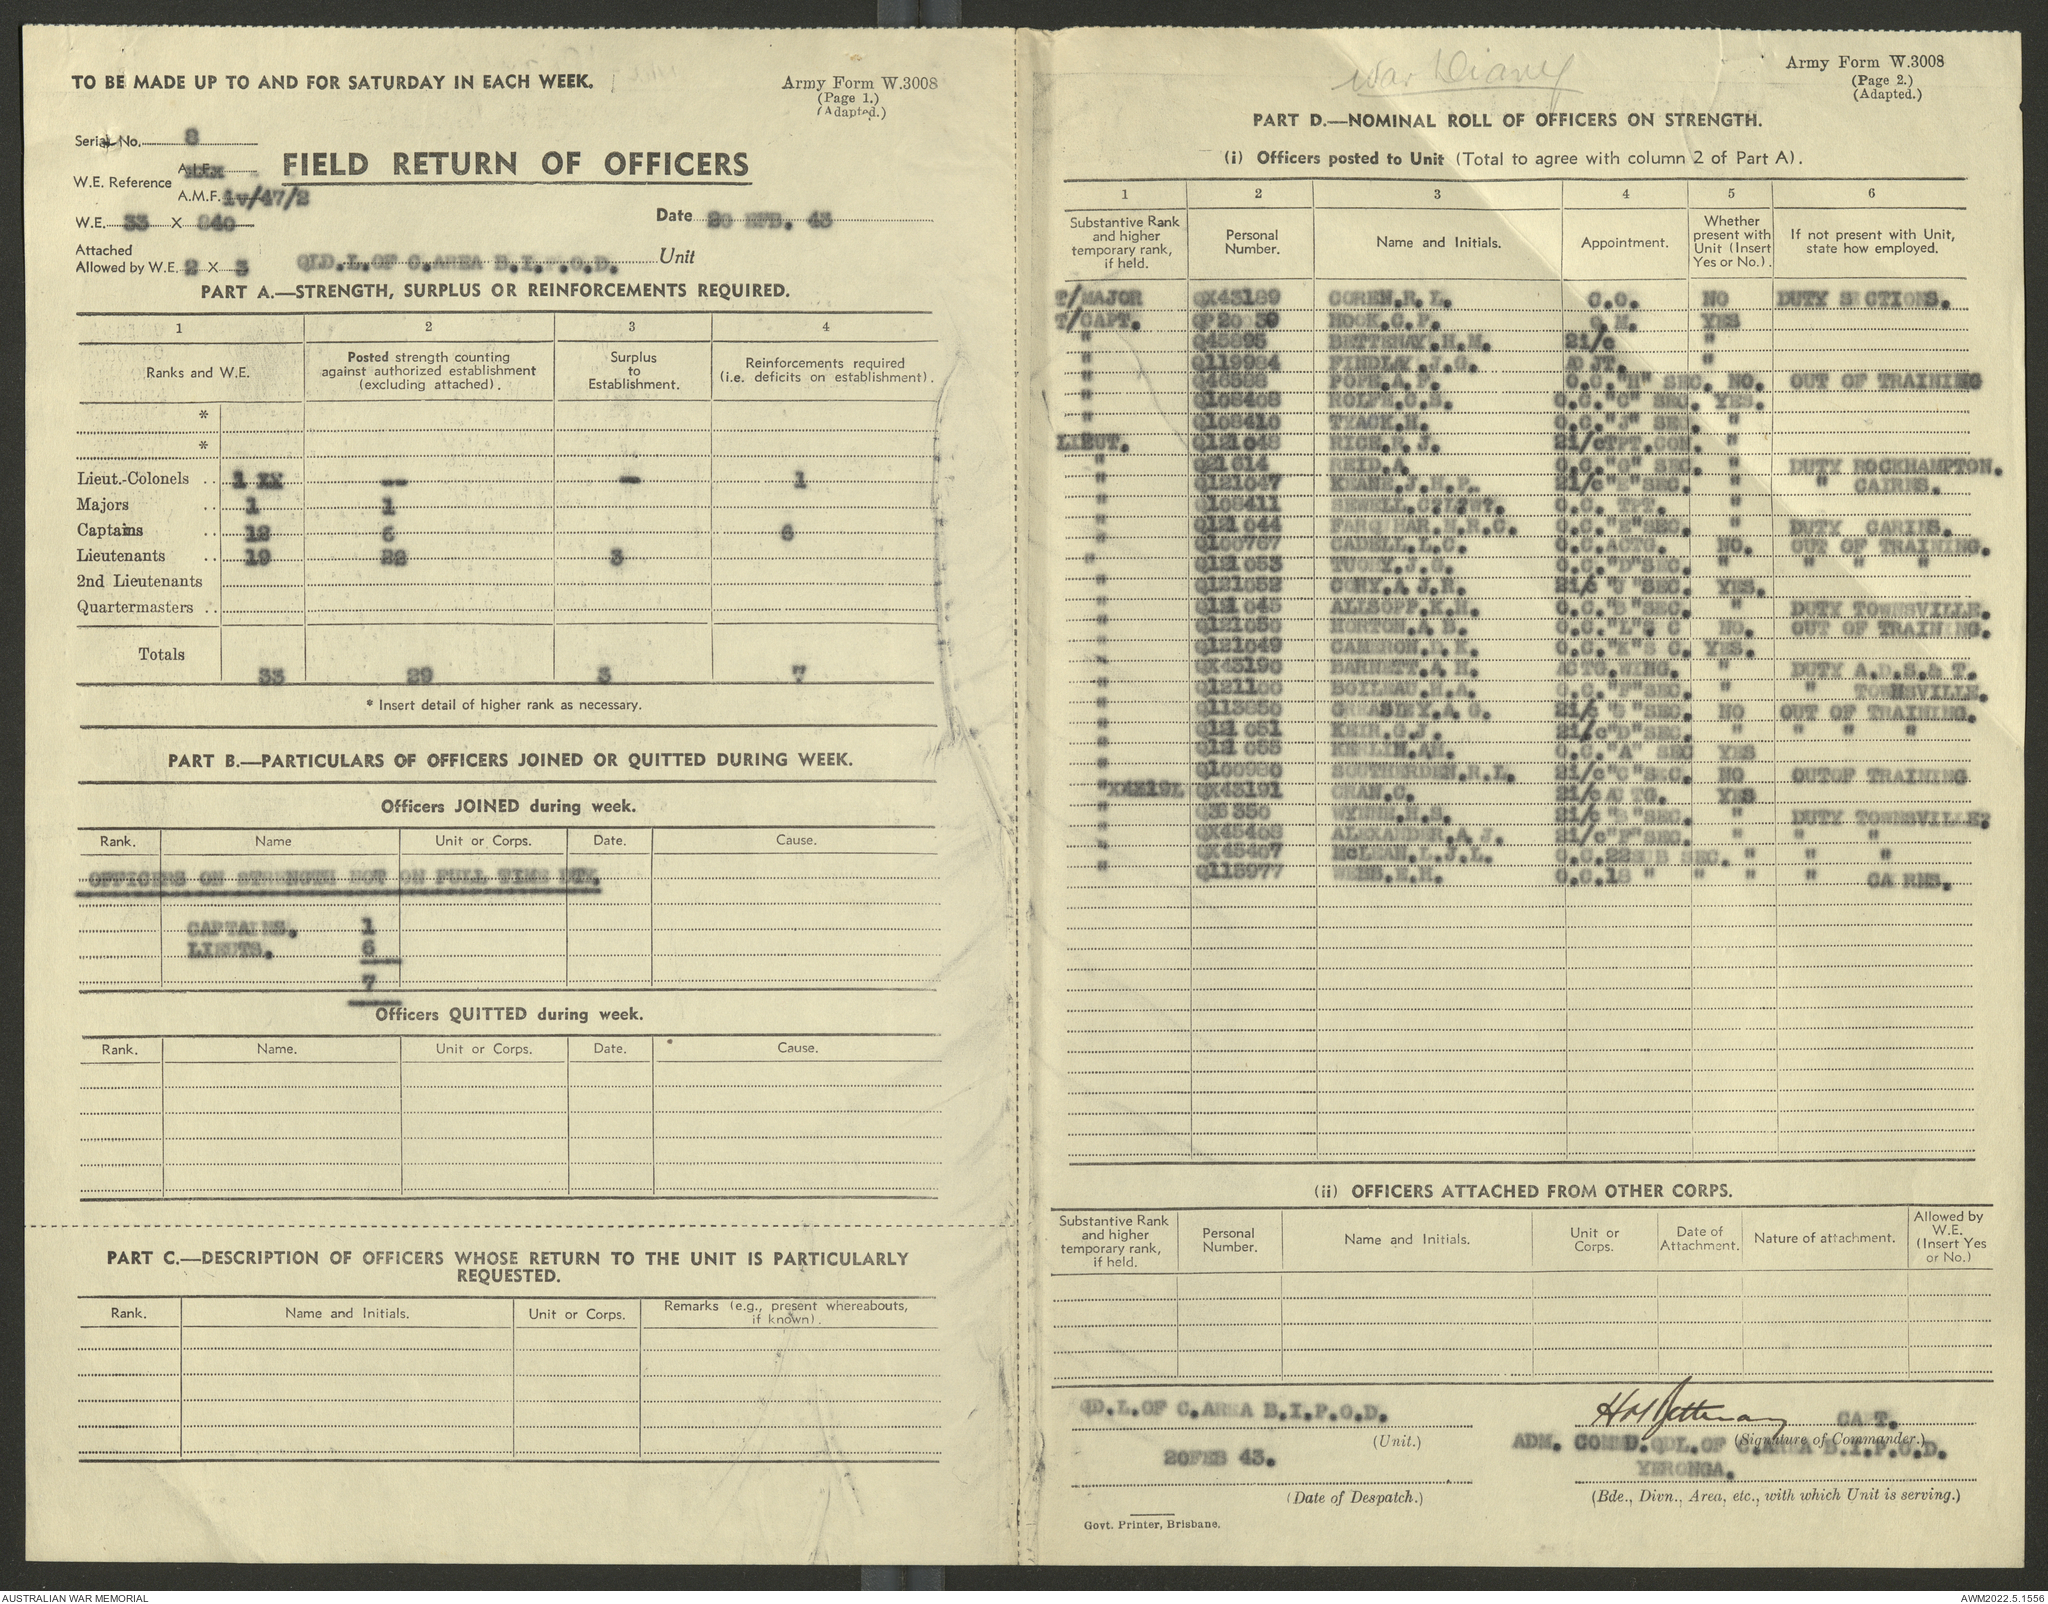 TO BE MADE UP TO AND FOR SATURDAY IN EACH WEEK.
Army Form W.3008
(Page 1.)
(Adapted.)
Serial No. 8
FIELD RETURN OF OFFICERS
W.E. Reference A.I.F.
A.M.F. 1v/47/2
W.E. 33 X 840
Date 20 FEB. 43
Attached
Allowed by W.E. 2 X 3
QLD.L.OF C.AREA B.I.P.O.D. Unit
PART A.—STRENGTH, SURPLUS OR REINFORCEMENTS REQUIRED.
1 2 3 4
Ranks and W.E.
Posted strength counting against authorized establishment (excluding attached).
Surplus to Establishment.
Reinforcements required (i.e. deficits on establishment).
*
*
Lieut.-Colonels .. 1 XX — — 1
Majors .. 1 1
Captains .. 12 6 6
Lieutenants .. 19 22 3
2nd Lieutenants
Quartermasters ..
Totals 33 29 3 7
* Insert detail of higher rank as necessary.
PART B.—PARTICULARS OF OFFICERS JOINED OR QUITTED DURING WEEK.
Officers JOINED during week.
Rank. Name Unit or Corps. Date. Cause.
OFFICERS ON STRENGTH NOT ON FULL TIME DTY.
CAPTAINS. 1
LIEUTS. 6
7
Officers QUITTED during week.
Rank. Name. Unit or Corps. Date. Cause.
PART C.—DESCRIPTION OF OFFICERS WHOSE RETURN TO THE UNIT IS PARTICULARLY
REQUESTED.
Rank. Name and Initials. Unit or Corps. Remarks (e.g., present whereabouts, if known).
War Diary
Army Form W.3008
(Page 2.)
(Adapted.)
PART D.—NOMINAL ROLL OF OFFICERS ON STRENGTH.
(i) Officers posted to Unit (Total to agree with column 2 of Part A).
1 2 3 4 5 6
Substantive Rank and higher temporary rank, if held.
Personal Number.
Name and Initials.
Appointment.
Whether present with Unit (Insert Yes or No.).
If not present with Unit, state how employed.
T/MAJOR QX43189 COREN.R.L. C.O. NO DUTY SECTIONS.
T/CAPT. QP20039 HOOK.C.P. Q.M. YES
" Q45895 BETTENAY.H.M. 2i/c "
" Q119984 FINDLAY.J.G. ADJT. "
" Q46588 POPE.A.F. O.C."H" SEC. NO. OUT OF TRAINING
" Q108408 ROLFE.C.S. O.C."C" SEC. YES.
" Q108410 TYACK.H. O.C."J" SEC. "
LIEUT. Q121048 RICE.R.J. 2i/cTPT.CON. "
" Q21614 REID.A. O.C."G" SEC. " DUTY ROCKHAMPTON.
" Q121047 KEANE.J.H.P. 2i/c"E"SEC. " " CAIRNS.
" Q108411 SEWELL.C?L?W?. O.C. TPT. "
" Q121044 FARQUHAR.N.R.C. O.C."E"SEC. " DUTY CARINS.
" Q100767 CADELL.L.C. O.C.ACTG. NO. OUT OF TRAINING.
" Q121053 TUOHY.J.G. O.C."D"SEC. " " " "
" Q121052 CORY.A.J.R. 2i/c "J"SEC. YES.
" Q121045 ALLSOPP.K.H. O.C."B"SEC. " DUTY TOWNSVILLE.
" Q121050 HORTON.A.B. O.C."L"S C NO. OUT OF TRAINING.
" Q121049 CAMERON.D.K. O.C."K"S C. YES.
" QX43190 BARNETT.A.H. ACTG.WING. " DUTY A.D.S.& T.
" Q121100 BOILEAU.H.A. O.C."F"SEC. " " TOWNSVILLE.
" Q113850 GREASLEY.A.G. 2i/c "B"SEC. NO OUT OF TRAINING.
" Q121051 KEIR.G.J. 2i/c"D"SEC. " " " "
" Q121055 KERLIN.AH. O.C."A" SEC YES
" Q100980 SOUTHERDEN.R.L. 2i/c"C"SEC. NO OUTOF TRAINING
" QX43191 CRAN.C. 2i/c ACTG. YES
" Q36350 WYNNE.H.S. 2i/c "B"SEC. " DUTY TOWNSVILLE?
" QX45468 ALEXANDER.A.J. 2i/c"F"SEC. " " "
" QX45407 McLEAN.L.J.L. O.C.22SUB SEC. " " "
" Q115977 WEBB.E.H. O.C.18 " " " " CAIRNS.
(ii) OFFICERS ATTACHED FROM OTHER CORPS.
Substantive Rank and higher temporary rank, if held.
Personal Number.
Name and Initials.
Unit or Corps.
Date of Attachment.
Nature of attachment.
Allowed by W.E. (Insert Yes or No.)
QD.L.OF C.AREA B.I.P.O.D.
(Unit.)
HM Bettenay CAPT.
(Signature of Commander.)
ADM. COMMD.QDL.OF C.AREA B.I.P.O.D.
20FEB 43.
YERONGA.
(Date of Despatch.)
(Bde., Divn., Area, etc., with which Unit is serving.)
Govt. Printer, Brisbane.
AUSTRALIAN WAR MEMORIAL
AWM2022.5.1556